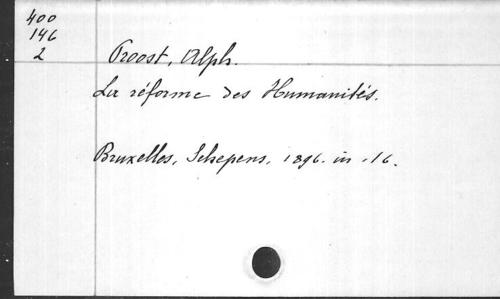 400
146
2
Proost, Alph.
La réforme des Humanités.
Bruxelles, Schepens, 1896. in-16.